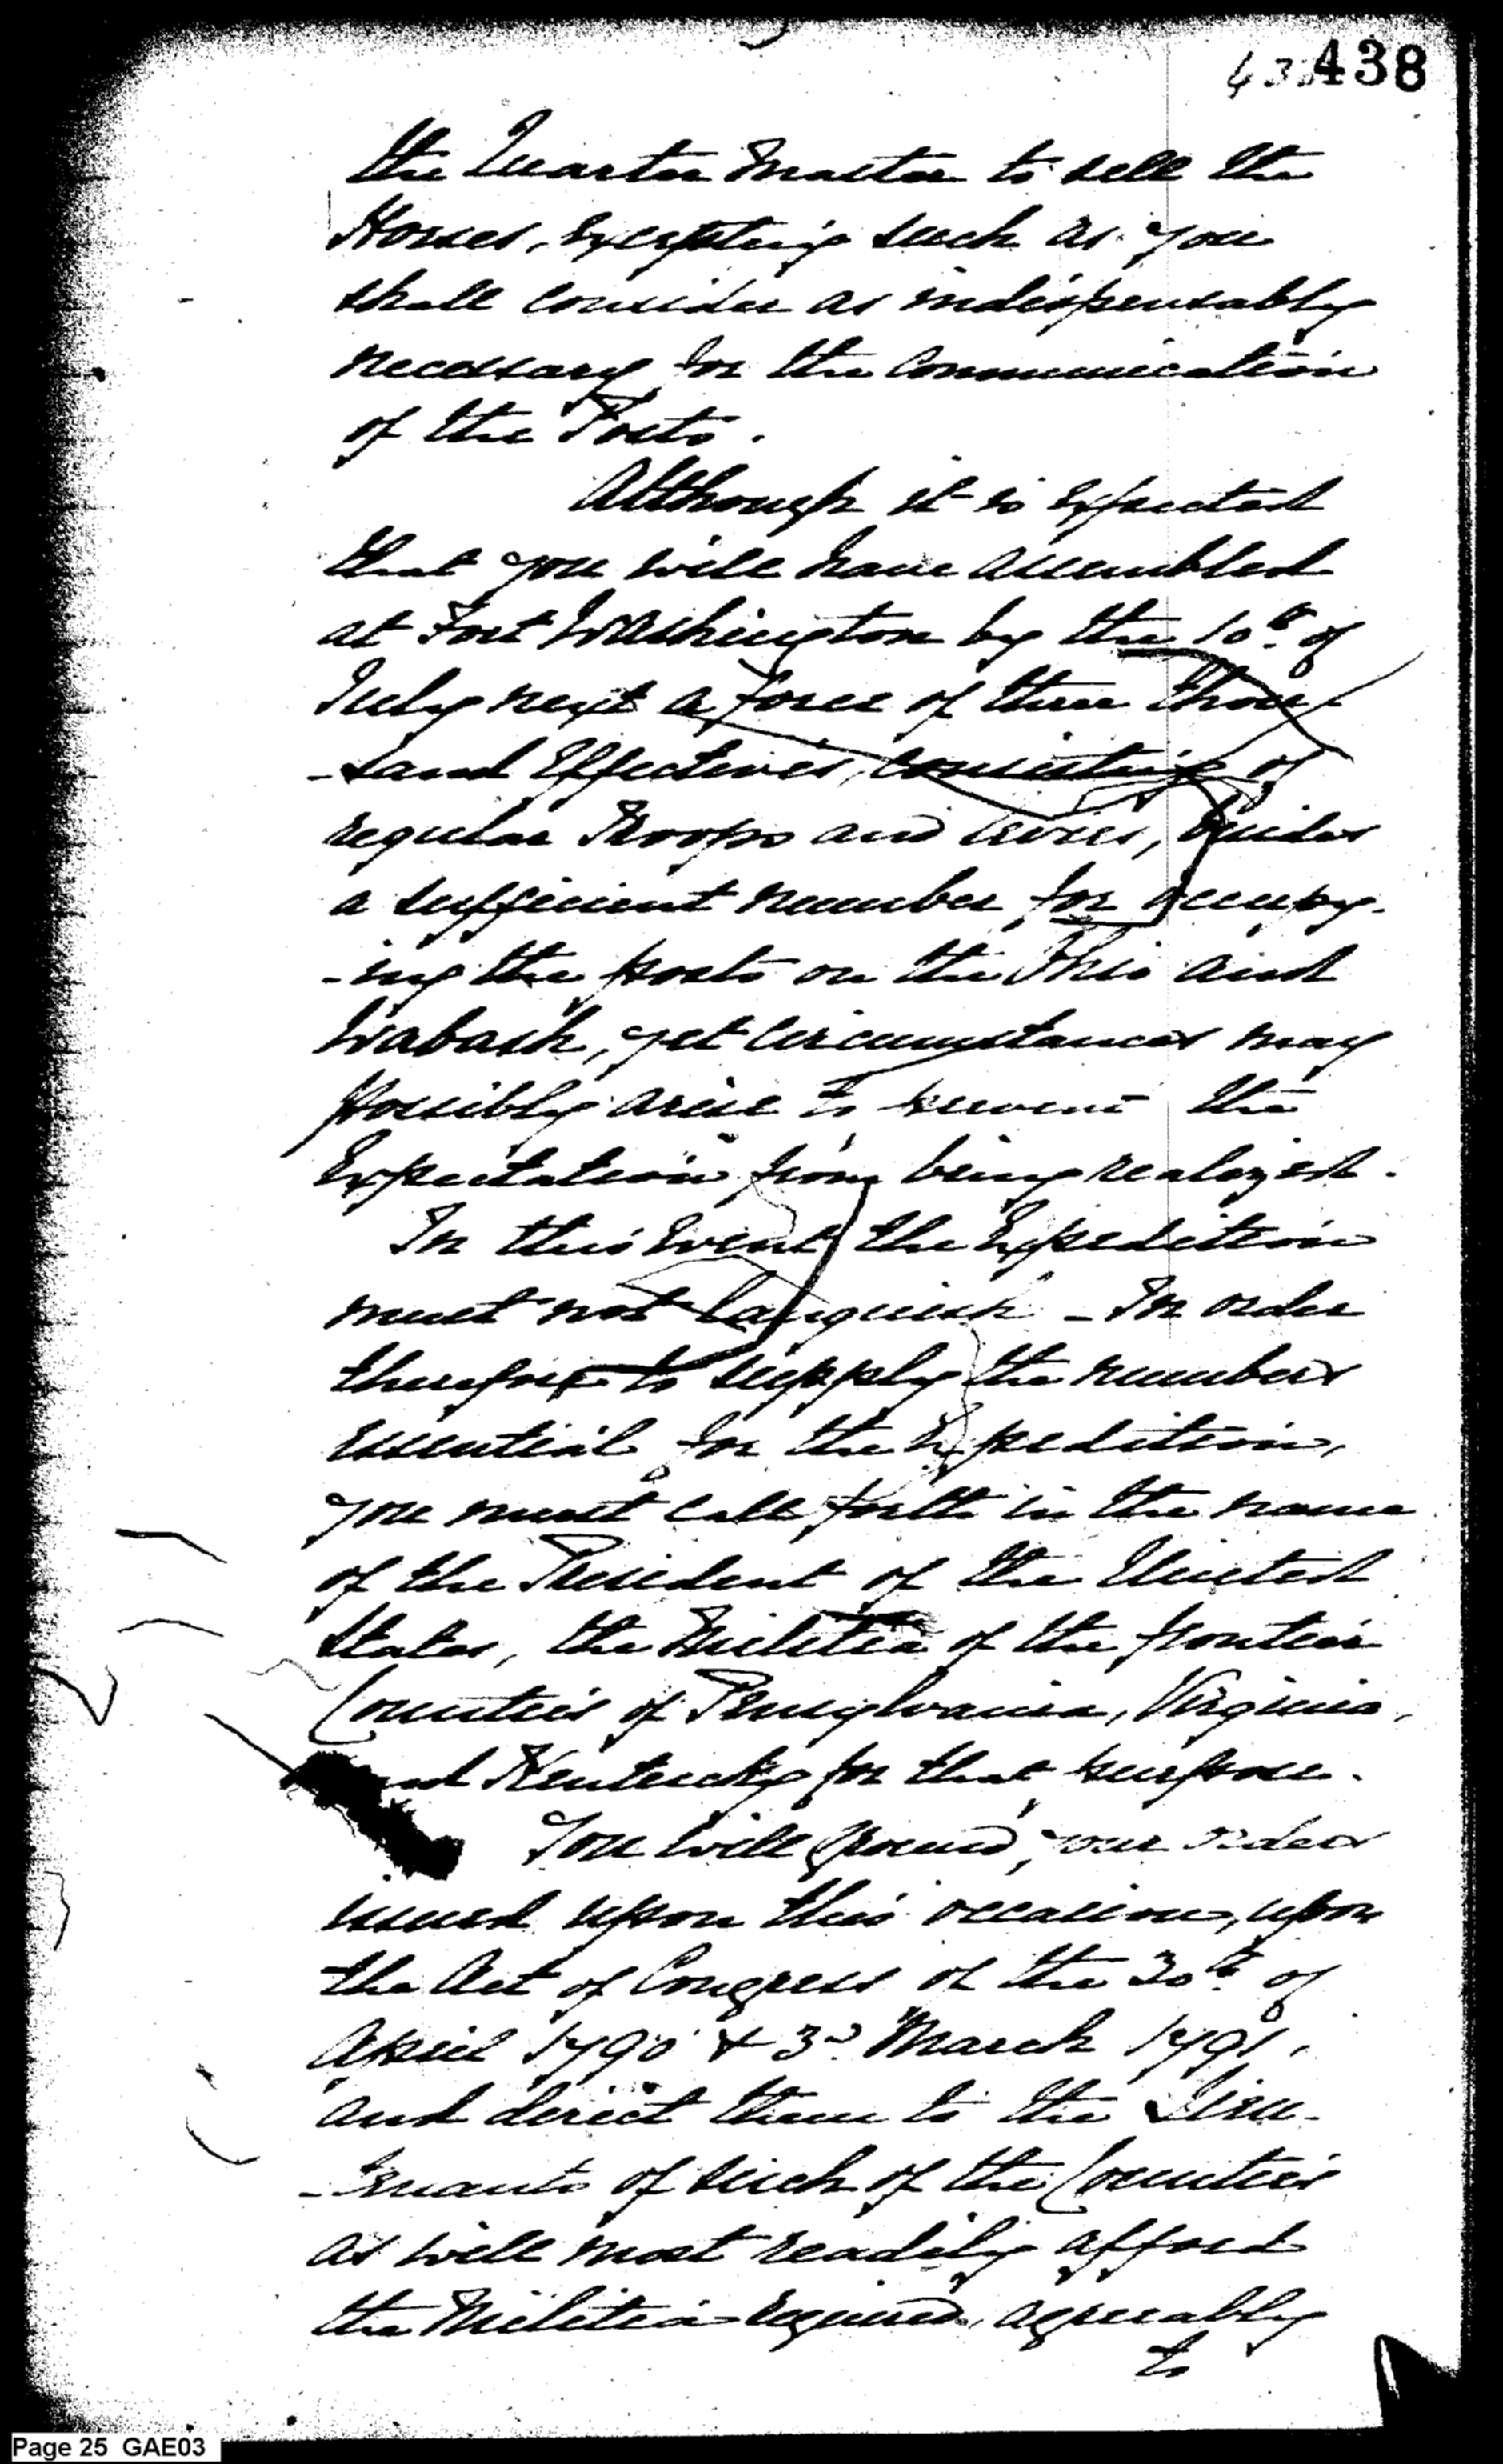 438
the Quarter Master to sell the
Horses, excepting such as you
shall consider as indispensably
necessary for the Communication
of the Posts.
Although it is expected
that you will have assembled
at Fort Washington by the 10th. of
July next a force of three thou-
-sand Effectives, consisting of
regular Troops and levies, besides
a sufficient number for occupy-
-ing the posts on the Ohio and
Wabash, yet circumstances may
possibly arise to prevent the
Expectation from being realized.
In this event the Expedition
must not languish - In order
therefore to supply the numbers
essential for the Expedition,
you must call forth in the name
of the President of the United
States, the Militia of the frontier
Counties of Pennsylvania, Virginia,
and Kentucky for that purpose.
You will ground, your orders
issued upon this occasion, upon
the Act of Congress of the 30th of
April 1790 & 3d. March 1791,
and direct them to the Lieu-
-tenants of such of the Counties
as will most readily afford
the Militia required, agreeably
to
Page 25 GAE03